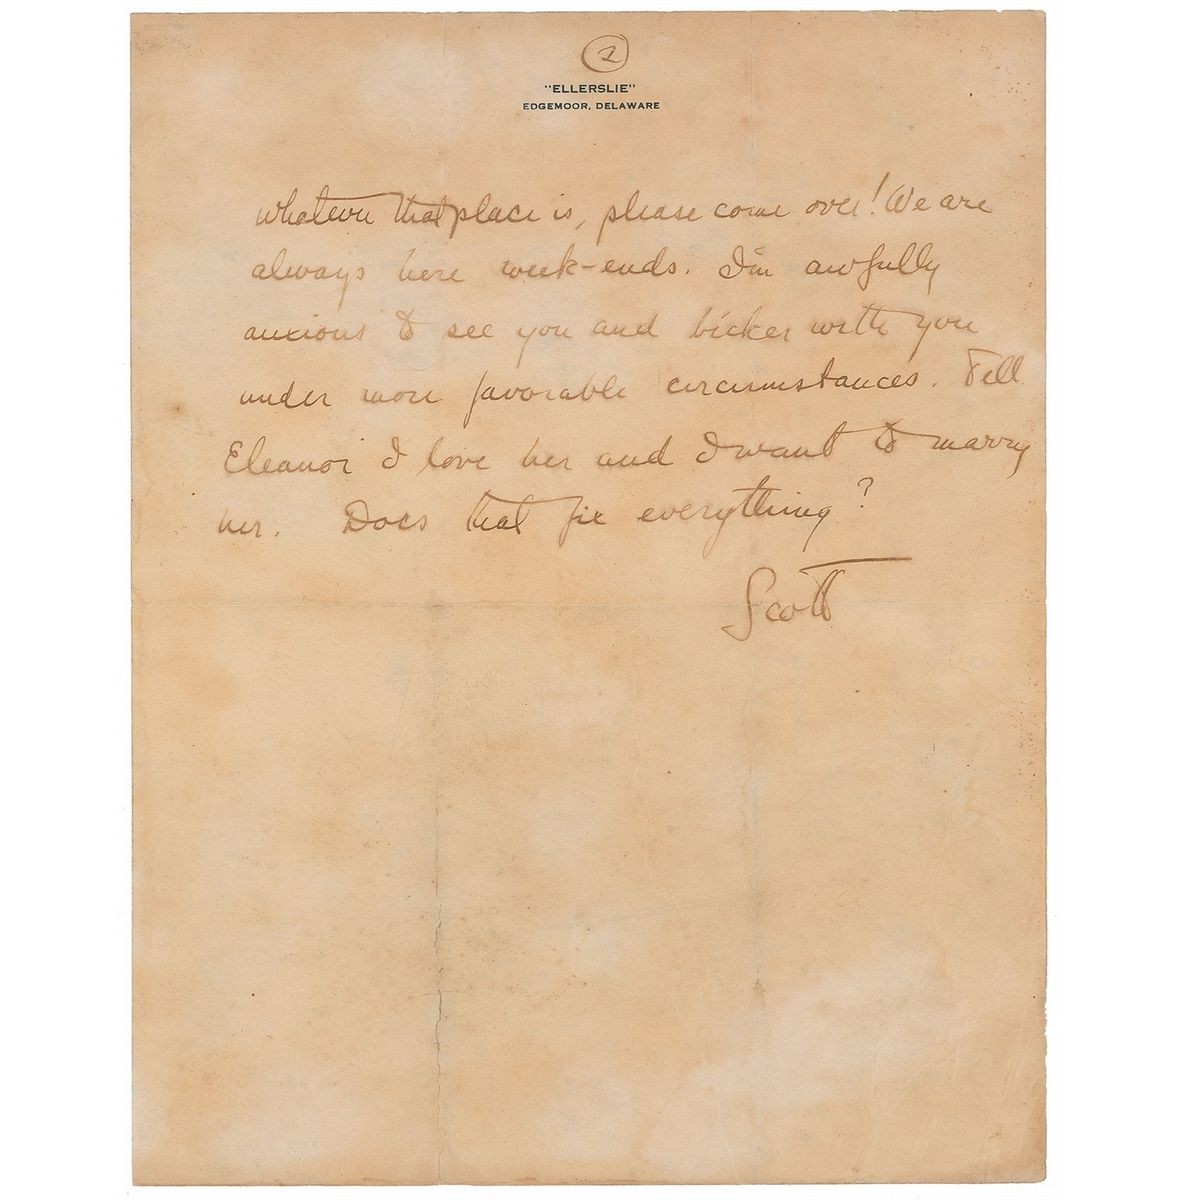 2
"ELLERSLIE"
EDGEMOOR, DELAWARE
whatever that place is, please come over! We are
always here week-ends. I'm awfully
anxious to see you and bicker with you
under more favorable circumstances. Tell
Eleanor I love her and I want to marry
her. Does that fix everything?
Scott